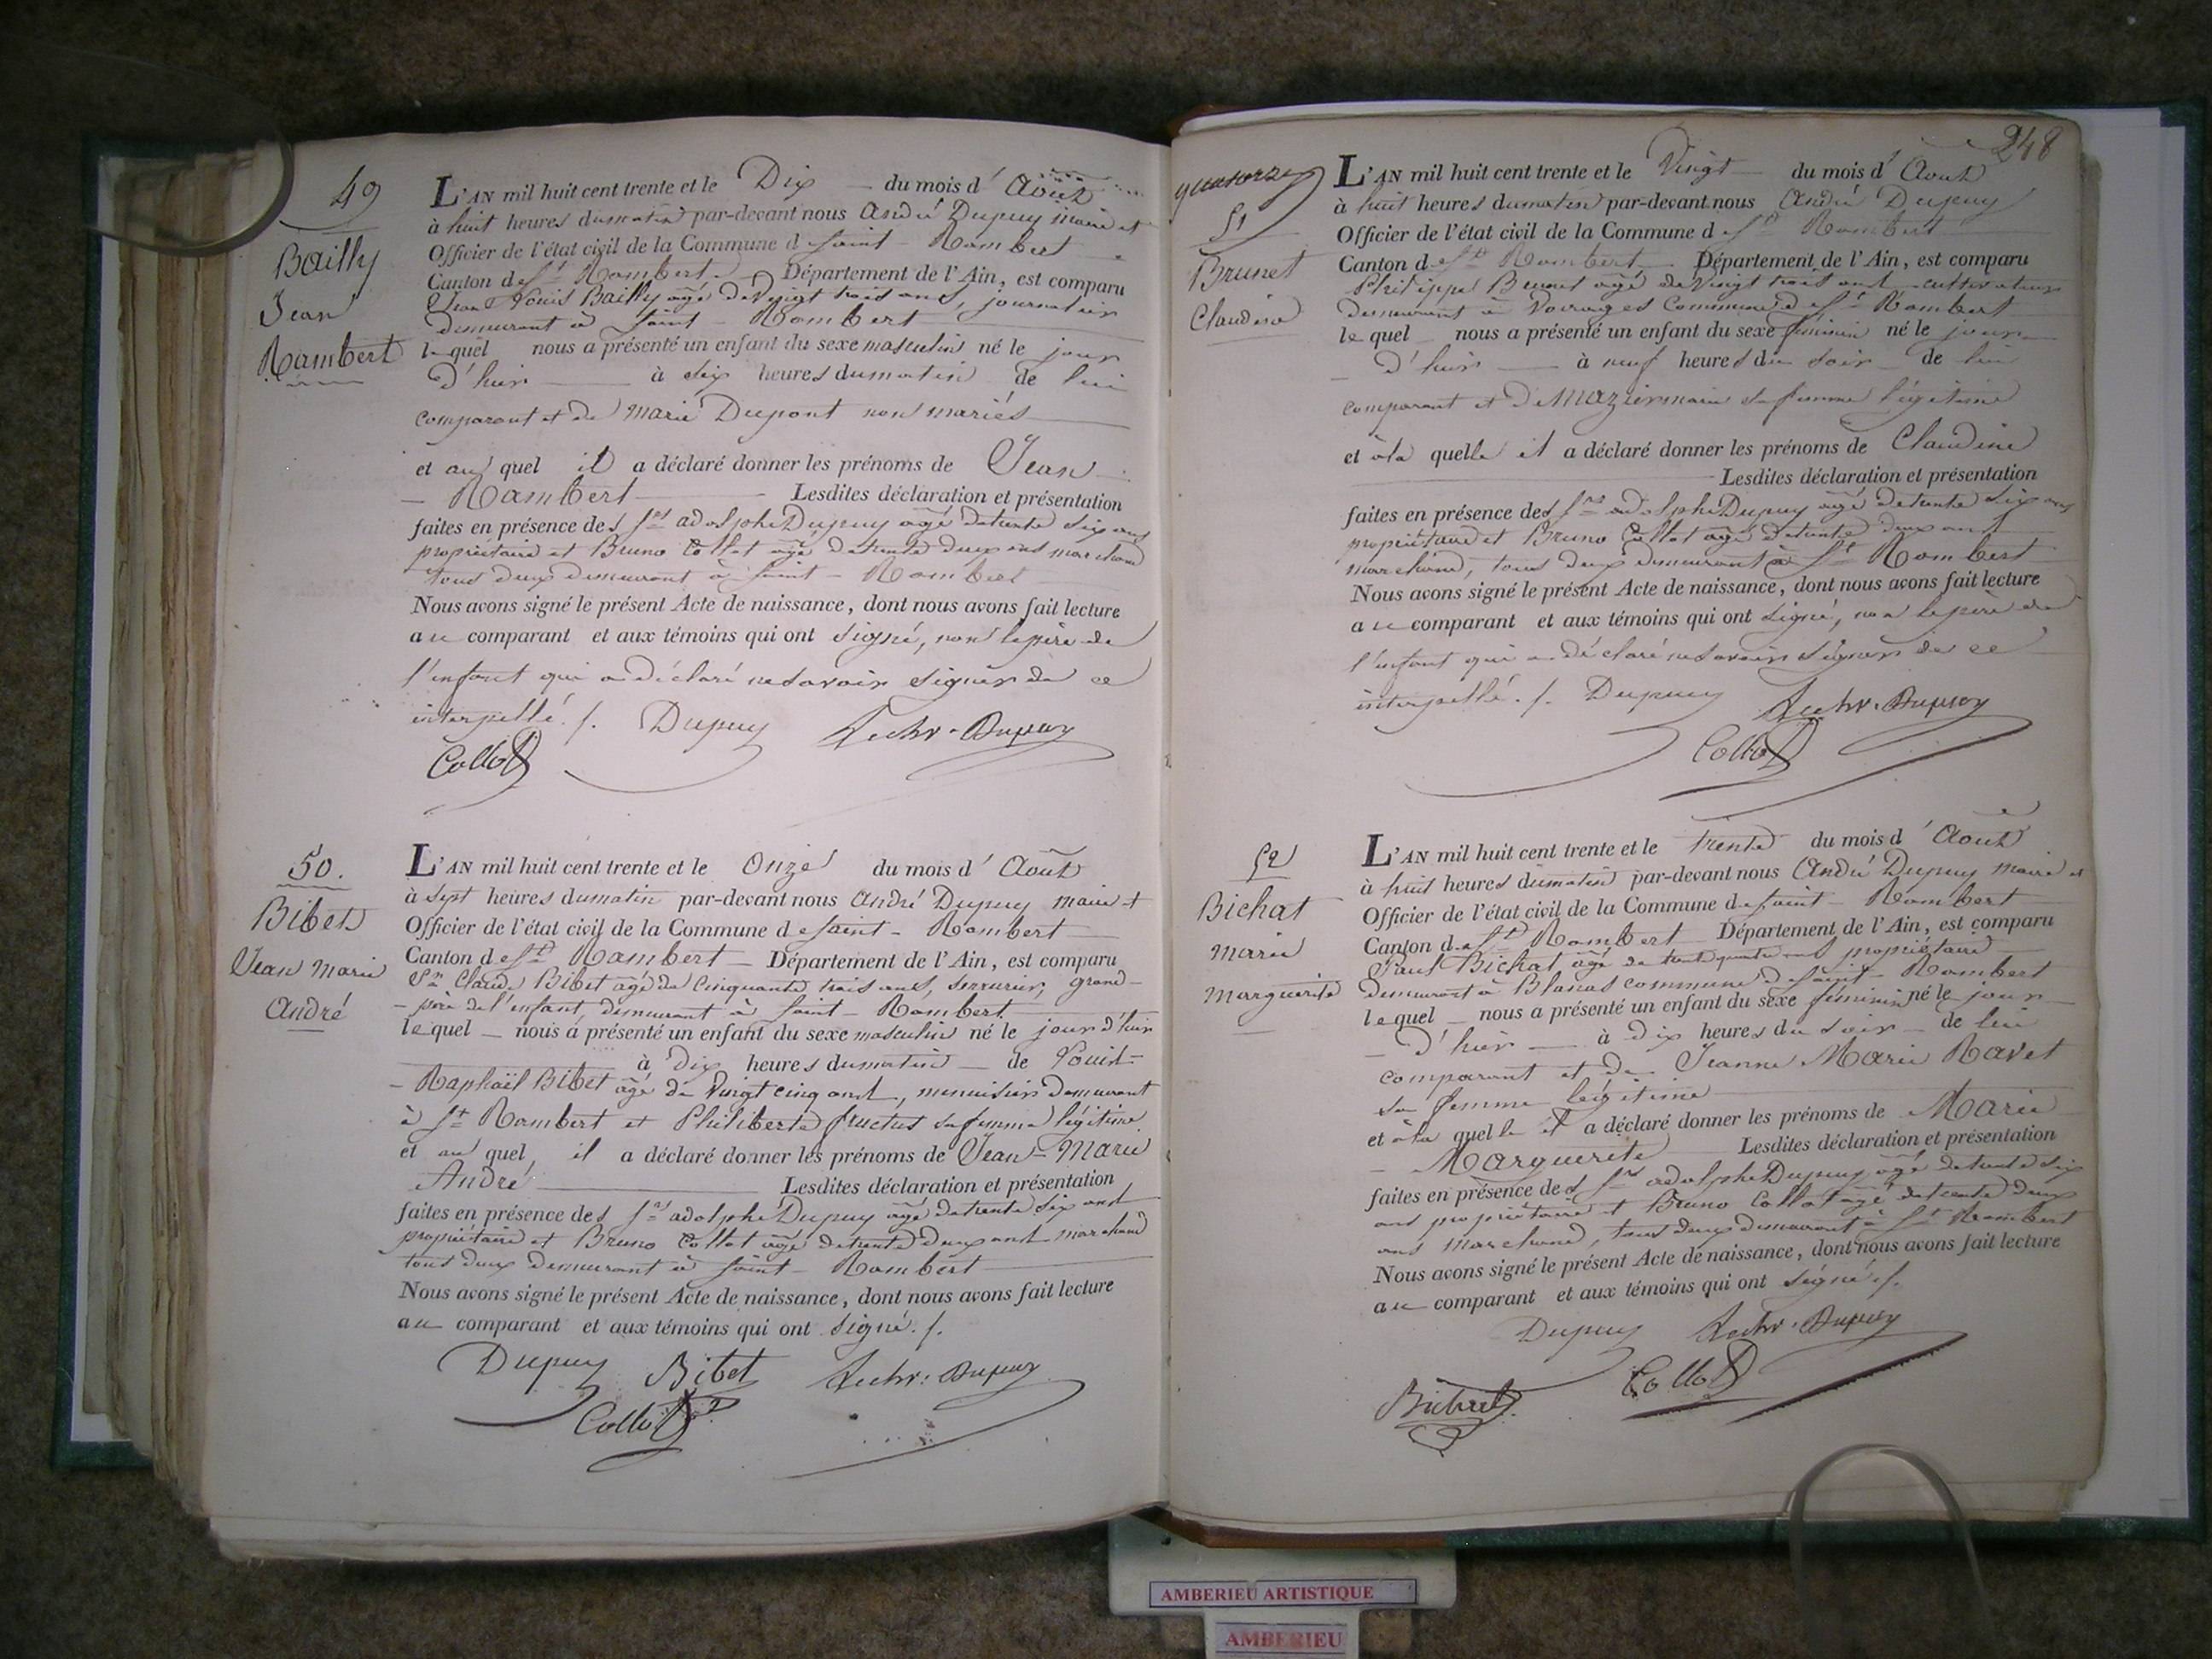 49
Bailly
Jean
Rambert
L'AN mil huit cent trente et le Dix du mois d'Août
à huit heures du matin par-devant nous André Dupuy maire et
Officier de l'état civil de la Commune de saint-Rambert
Canton de St Rambert Département de l'Ain, est comparu
Jean Louis Bailly agé de Vingt trois ans, journalier
demeurant à saint-Rambert
lequel nous a présenté un enfant du sexe masculin né le jour
d'hier à six heures du matin de lui
comparant et de Marie Dupont non mariés
et au quel il a déclaré donner les prénoms de Jean
Rambert Lesdites déclaration et présentation
faites en présence des srs adolphe Dupuy agé de trente six ans
propriétaire et Bruno Collot agé de trente deux ans marchand
tous deux demeurant à saint-Rambert
Nous avons signé le présent Acte de naissance, dont nous avons fait lecture
au comparant et aux témoins qui ont signé, non le père de
l'enfant qui a déclaré ne savoir signer de ce
interpellé ./. Dupuy
Dupuy
Collot
50.
Bibet
Jean Marie
André
L'AN mil huit cent trente et le Onze du mois d'Août
à sept heures du matin par-devant nous André Dupuy maire et
Officier de l'état civil de la Commune de saint-Rambert
Canton de St Rambert Département de l'Ain, est comparu
Sr Claude Bibet agé de Cinquante trois ans, serrurier, grand-
père de l'enfant, demeurant à saint-Rambert
lequel nous a présenté un enfant du sexe masculin né le jour d'hier
à dix heures du matin de Louis-
Raphaël Bibet agé de Vingt cinq ans, menuisier demeurant
à St Rambert et Philiberte fructus sa femme légitime
et au quel, il a déclaré donner les prénoms de Jean-Marie
André Lesdites déclaration et présentation
faites en présence des srs adolphe Dupuy agé de trente six ans
propriétaire et Bruno Collot agé de trente deux ans marchand
tous deux demeurant à saint-Rambert
Nous avons signé le présent Acte de naissance, dont nous avons fait lecture
au comparant et aux témoins qui ont signé ./.
Dupuy Bibet Dupuy
Collot
248
quatorze
51
Brunet
Claudine
L'AN mil huit cent trente et le Vingt du mois d'Août
à huit heures du matin par-devant nous André Dupuy
Officier de l'état civil de la Commune de St Rambert
Canton de St Rambert Département de l'Ain, est comparu
Philippe Brunet agé de Vingt trois ans cultivateur
demeurant à Commune de St Rambert
lequel nous a présenté un enfant du sexe féminin né le jour
d'hier à neuf heures du soir de lui
comparant et de sa femme légitime
et à la quelle il a déclaré donner les prénoms de Claudine
Lesdites déclaration et présentation
faites en présence des srs adolphe Dupuy agé de trente six ans
propriétaire et Bruno Collot agé de trente deux ans
marchand, tous deux demeurant à St Rambert
Nous avons signé le présent Acte de naissance, dont nous avons fait lecture
au comparant et aux témoins qui ont signé, non le père de
l'enfant qui a déclaré ne savoir signer de ce
interpellé ./. Dupuy
Dupuy
Collot
52
Bichat
Marie
Marguerite
L'AN mil huit cent trente et le trente du mois d'Août
à huit heures du matin par-devant nous André Dupuy maire et
Officier de l'état civil de la Commune de saint-Rambert
Canton de St Rambert Département de l'Ain, est comparu
Paul Bichat agé de trente quatre ans propriétaire
demeurant à Blanas commune de saint-Rambert
lequel nous a présenté un enfant du sexe féminin né le jour
d'hier à dix heures du soir de lui
comparant et de Jeanne Marie Ravet
sa femme légitime
et à la quelle il a déclaré donner les prénoms de Marie
Marguerite Lesdites déclaration et présentation
faites en présence des srs adolphe Dupuy agé de trente six
ans propriétaire et Bruno Collot agé de trente deux
ans marchand, tous deux demeurant à St Rambert
Nous avons signé le présent Acte de naissance, dont nous avons fait lecture
au comparant et aux témoins qui ont signé ./.
Dupuy Dupuy
Bichat Collot
AMBERIEU ARTISTIQUE
AMBERIEU